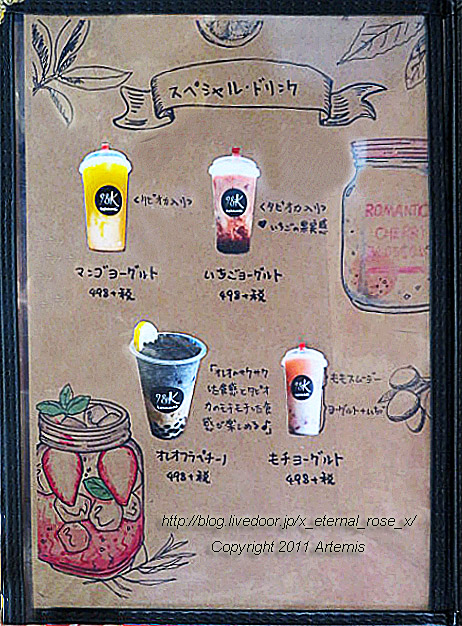 スペシャル・ドリンク
<タピオカ入り>
<タピオカ入り>
♥いちごの果実感
ROMANTIC
CHERRY
マンゴヨーグルト
498+税
いちごヨーグルト
498+税
「オレオのサクサク
な食感とタピオ
カのモチモチな食
感が楽しめる♪」
ももスムージー
ヨーグルト+いちご
オレオフラペチーノ
498+税
モチヨーグルト
498+税
http://blog.livedoor.jp/x_eternal_rose_x/
Copyright 2011 Artemis